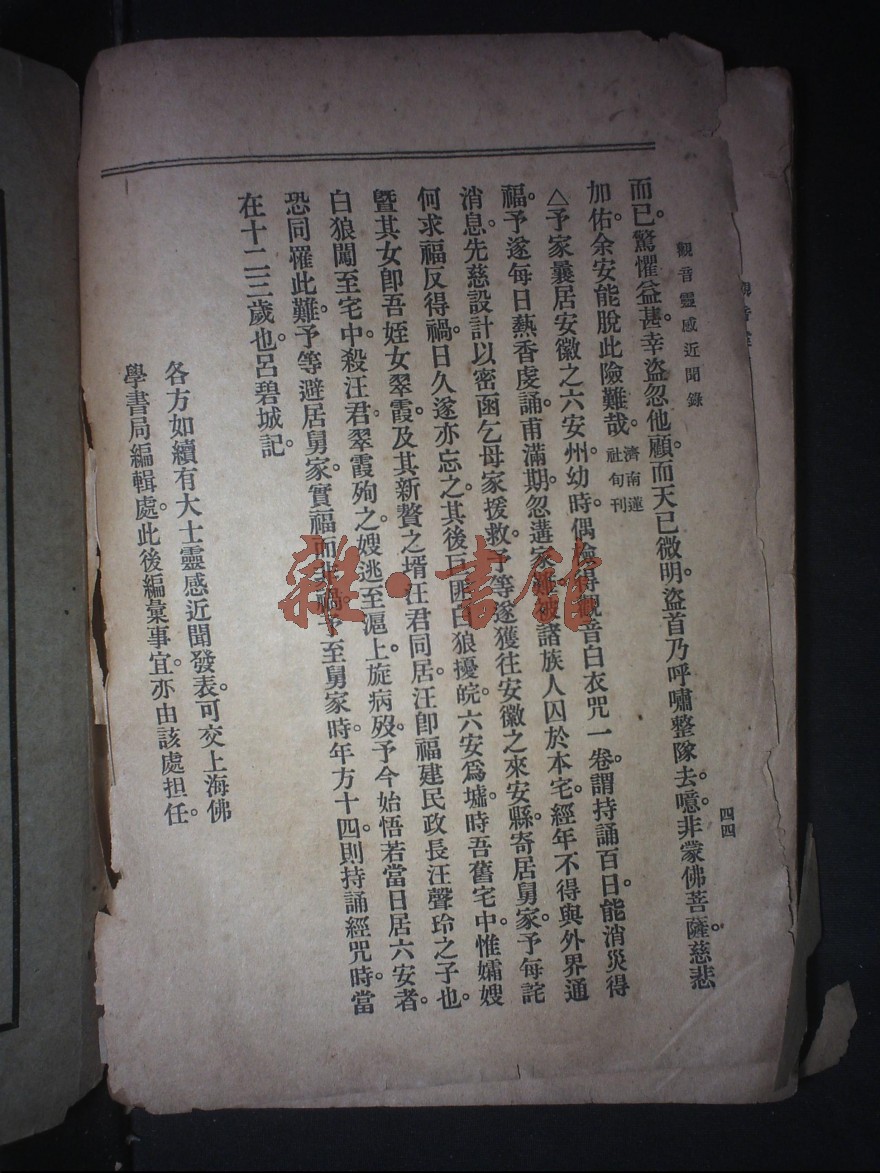 觀音靈感近聞錄
四四
而已。驚懼益甚。幸盜忽他顧。而天已微明。盜首乃呼嘯整隊去。噫。非蒙佛菩薩慈悲
加佑。余安能脫此險難哉。濟南蓮社旬刊
△予家曩居安徽之六安州。幼時。偶撿得觀音白衣咒一卷。謂持誦百日。能消災得
福。予遂每日熱香虔誦。甫滿期。忽遘家難。被諸族人囚於本宅。經年不得與外界通
消息。先慈設計以密函乞母家援救。予等遂獲往安徽之來安縣。寄居舅家。予每詫
何求福反得禍。日久遂亦忘之。其後巨匪白狼擾皖。六安爲墟。時吾舊宅中惟孀嫂
曁其女卽吾姪女翠霞及其新贅之壻汪君同居。汪卽福建民政長汪聲玲之子也。
白狼闖至宅中。殺汪君。翠霞殉之。嫂逃至滬上。旋病歿。予今始悟若當日居六安者。
恐同罹此難。予等避居舅家。實福而非禍。予至舅家時。年方十四。則持誦經咒時。當
在十二三歲也。呂碧城記。
各方如續有大士靈感近聞發表。可交上海佛
學書局編輯處。此後編彙事宜。亦由該處担任。
雜·書館